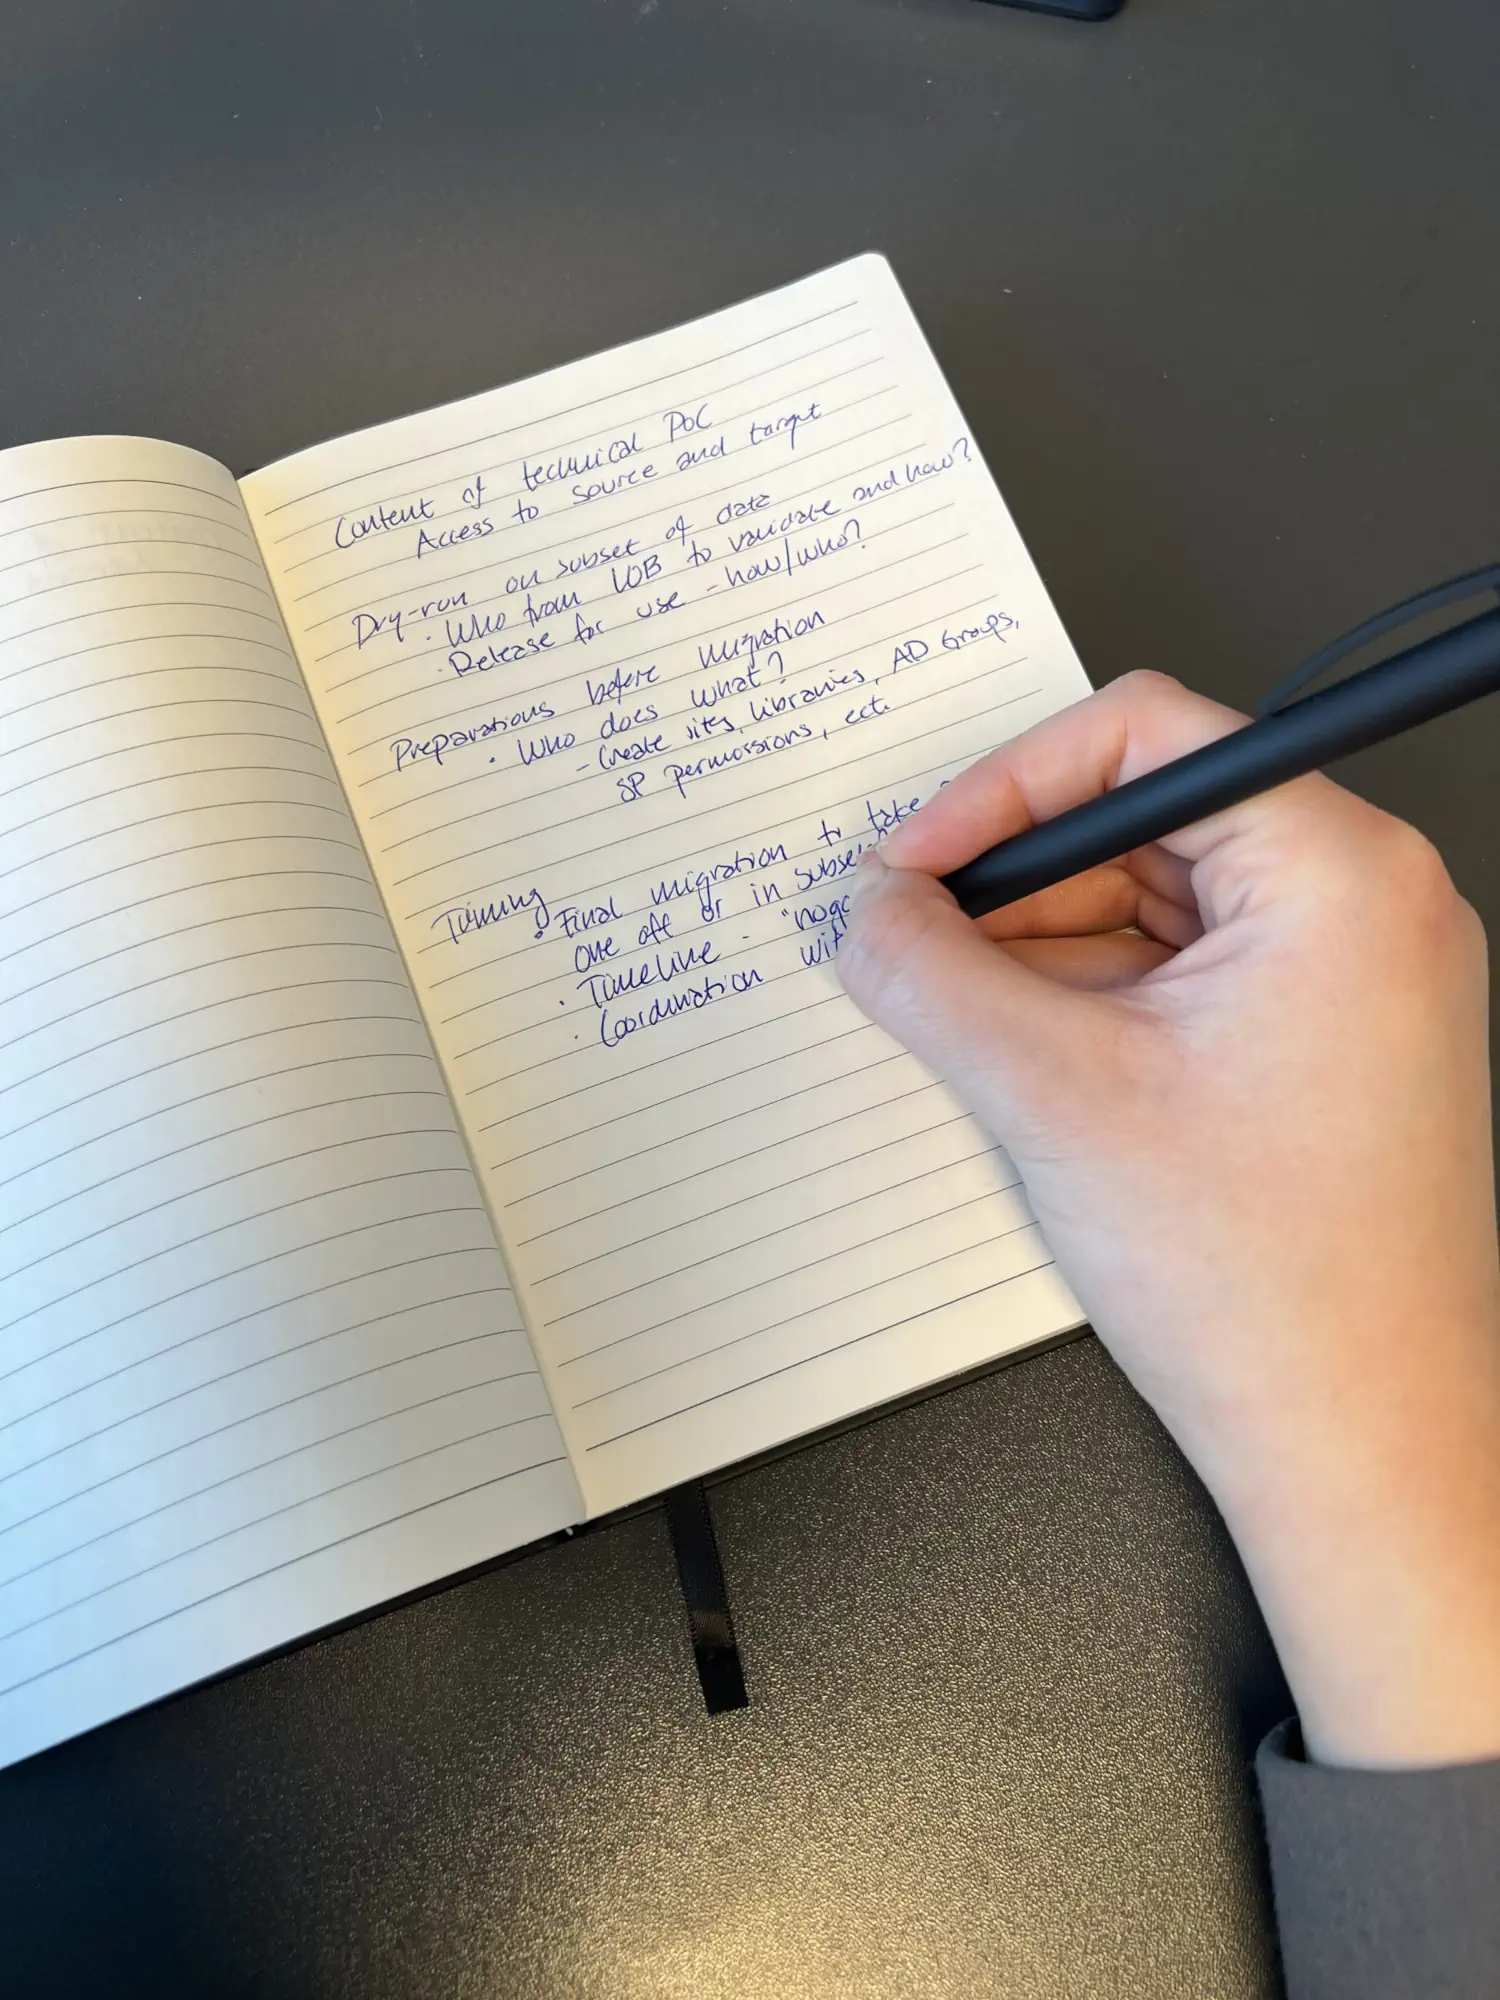 Content of technical PoC
Access to source and target
Dry-run on subset of data
· Who from LOB to validate and how?
· Release for use - how/who?
Preparations before migration
· Who does what?
- Create sites, libraries, AD Groups,
SP permissions, ect.
Timing
· Final migration to take
one off or in
· Timeline -
· Coordination